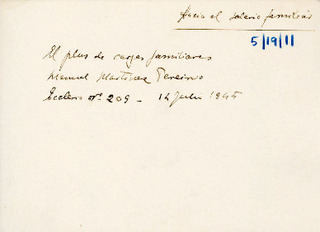 Hacia el salario familiar
5/19/11
El plus de cargas familiares
Manuel Martínez Pereiro
Ecclesia nº 209 - 14 Julio 1945